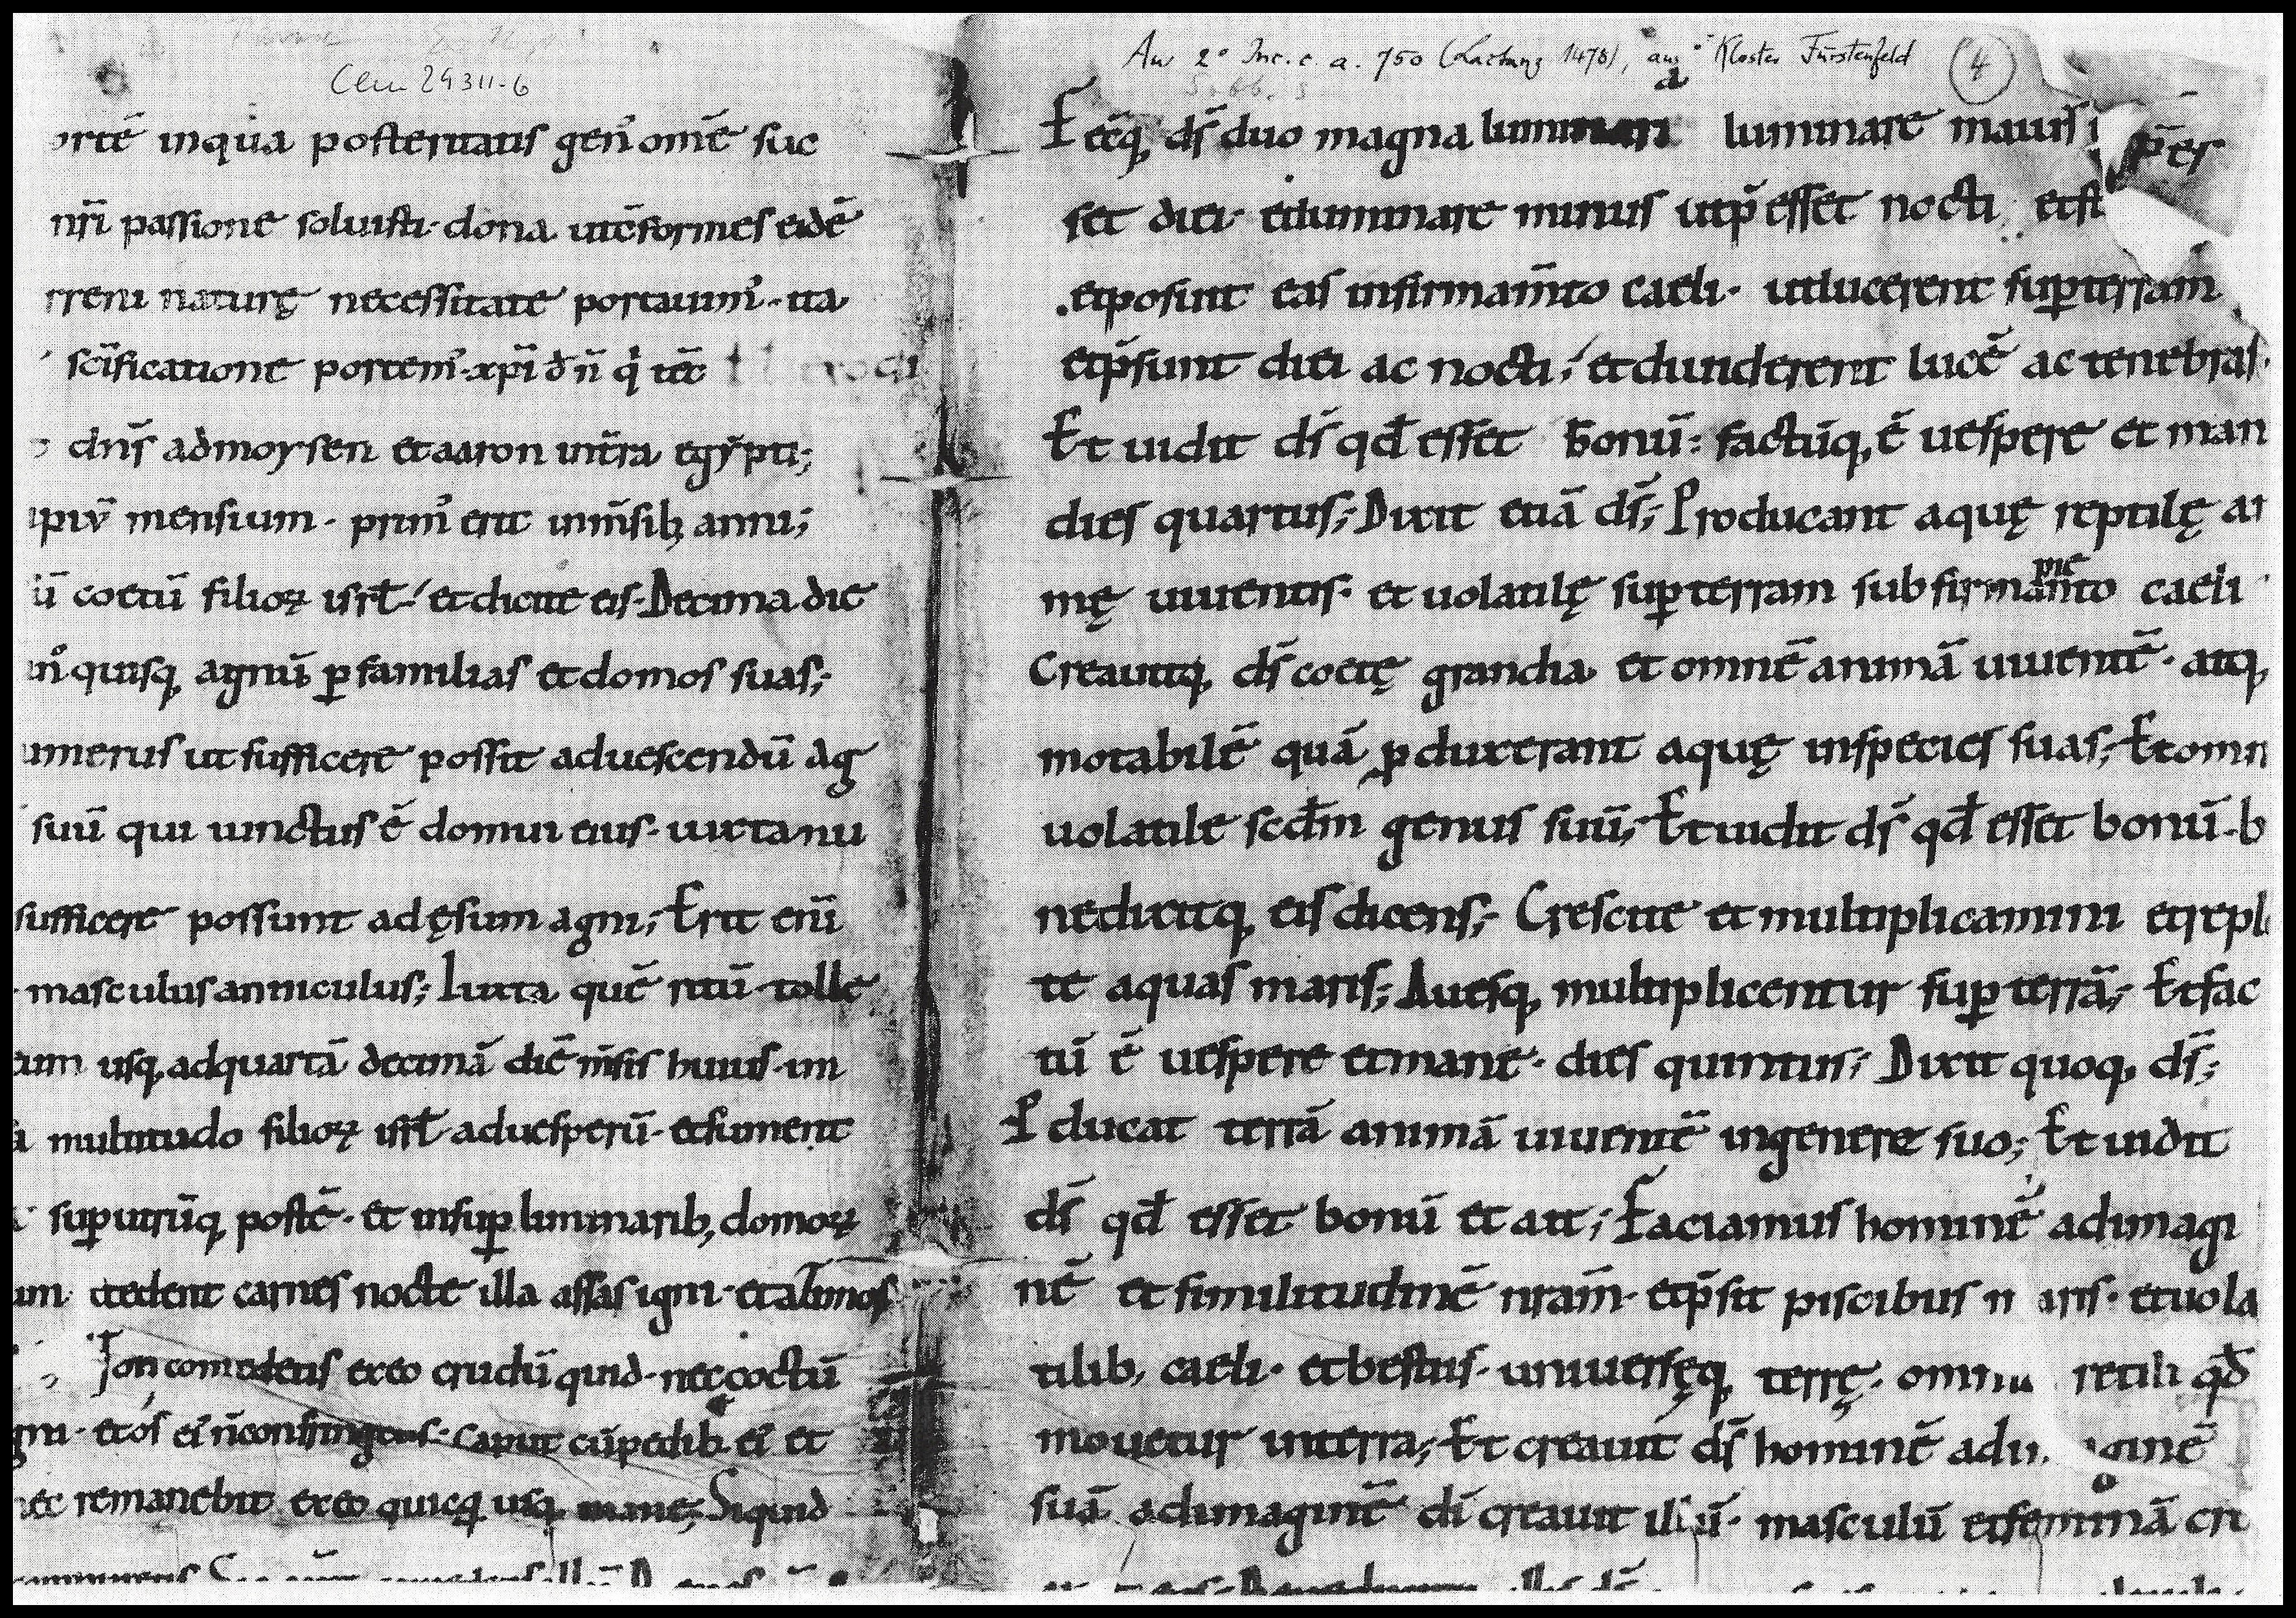 Clm 29311-6
ortē inqua posteritatis gen᾽ omē suc
nr̄i passione soluisti· dona utc̄formes eidē
rreni naturę necessitate portauim᾽· ita
sc̄ificatione portem᾽· xp̄i d n̄ q̇ tēc
dn̄s admoysen etaaron int̄ra egẏpti;
ipiū mensium· prim᾽ erit inm̄sib; anni;
ū coetū filioꝝ isrł· et dicite eis· Decima die
unꝰquisq; agnū ꝑ familias et domos suas;
umerus ut sufficere possit aduescendū ag
suū qui uinctus ē domui eius· iuxta nu
sufficere possunt adęsum agni; Erit enī
masculus anniculus; Iuxta quē ritū tolle
eum usq; adquartā decimā diē m̄sis huius· im
multitudo filioꝝ isrł aduesperū· etsument
suꝑ utrūq; postē· et insuꝑ liminarib; domoꝝ
um etedent carnes nocte illa assas igni· et azimos
Non comedetis exeo crudū quid· nec coctū
gni· et os ei᾽ n̄confringetis· caput cū pedib; ei᾽ et
nec remanebit exeo quicq̄ usq; mane; Siquid
An 2° Inc. c. a. 750 (Lactanz 1478), aus Kloster Fürstenfeld
4
Fecitq; ds̄ duo magna luminari a luminare maius
p̄es
set diei· etluminare minus utp̄esset nocti etst
etposuit eas infirmam̄to caeli· utlucerent suꝑterram
etp̄sunt diei ac nocti; et diuiderent lucē ac tenebras·
Et uidit ds̄ qd̄ esset bonū: factūq; ē uespere et man
dies quartus; Dixit etiā ds̄; Producant aquę reptilę an
mę uiuentis· et uolatilę suꝑterram sub firmam̄to me caeli
Creauitq; ds̄ coetę grandia et omnē animā uiuentē· atq;
motabilē quā ꝓduxerant aquę inspecies suas; Et omn
uolatile scd̄m genus suū; Et uidit ds̄ qd̄ esset bonū· b
nedixitq; eis dicens; Crescite et multiplicamini etrepl
te aquas maris; Auesq; multiplicentur suꝑ terrā; Et fac
tū ē uespere etmane· dies quintus; Dixit quoq; ds̄;
Ꝓducat terrā animā uiuentē ingenere suo; Et uidit
ds̄ qd̄ esset bonū et ait; Faciamus hominē adimagi
nē et similitudinē nr̄am· etp̄sit piscibus maris· etuola
tilib; caeli· etbestiis· uniuersęq; terrę· omniu retili qd̄
mouetur interra; Et creauit ds̄ hominē adimaginē
suā adimaginē dī creauit illū· masculū etfeminā cri